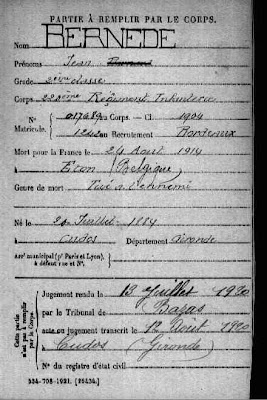 PARTIE À REMPLIR PAR LE CORPS.
Nom BERNEDE
Prénoms Jean
Grade 2ème classe
Corps Régiment Infanterie
N° 017689 au Corps. — Cl. 1904
Matricule. au Recrutement Bordeaux
Mort pour la France le 24 Août 1914
à (Belgique)
Genre de mort Tué à l'ennemi
Né le Juillet 1884
à Cudos Département Gironde
Arrt municipal (pr Paris et Lyon),
à défaut rue et N°.
Cette partie
n'est pas à remplir
par le Corps.
Jugement rendu le 13 Juillet 1920
par le Tribunal de Bazas
acte ou jugement transcrit le 12 Août 1920
à Cudos (Gironde)
N° du registre d'état civil
534-708-1921. [26434.]